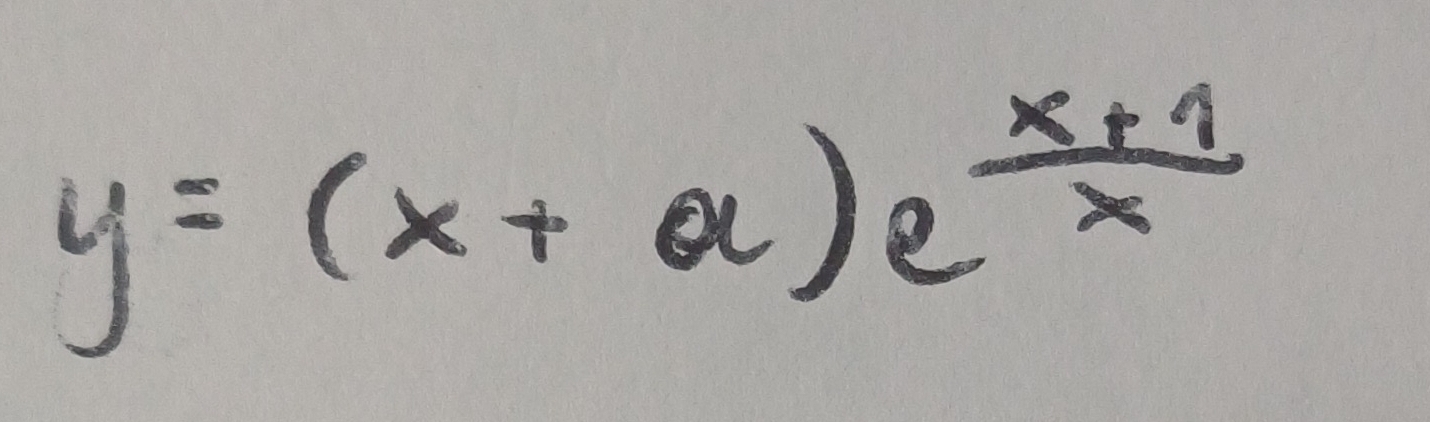 y = (x + a) e^{\frac{x+1}{x}}